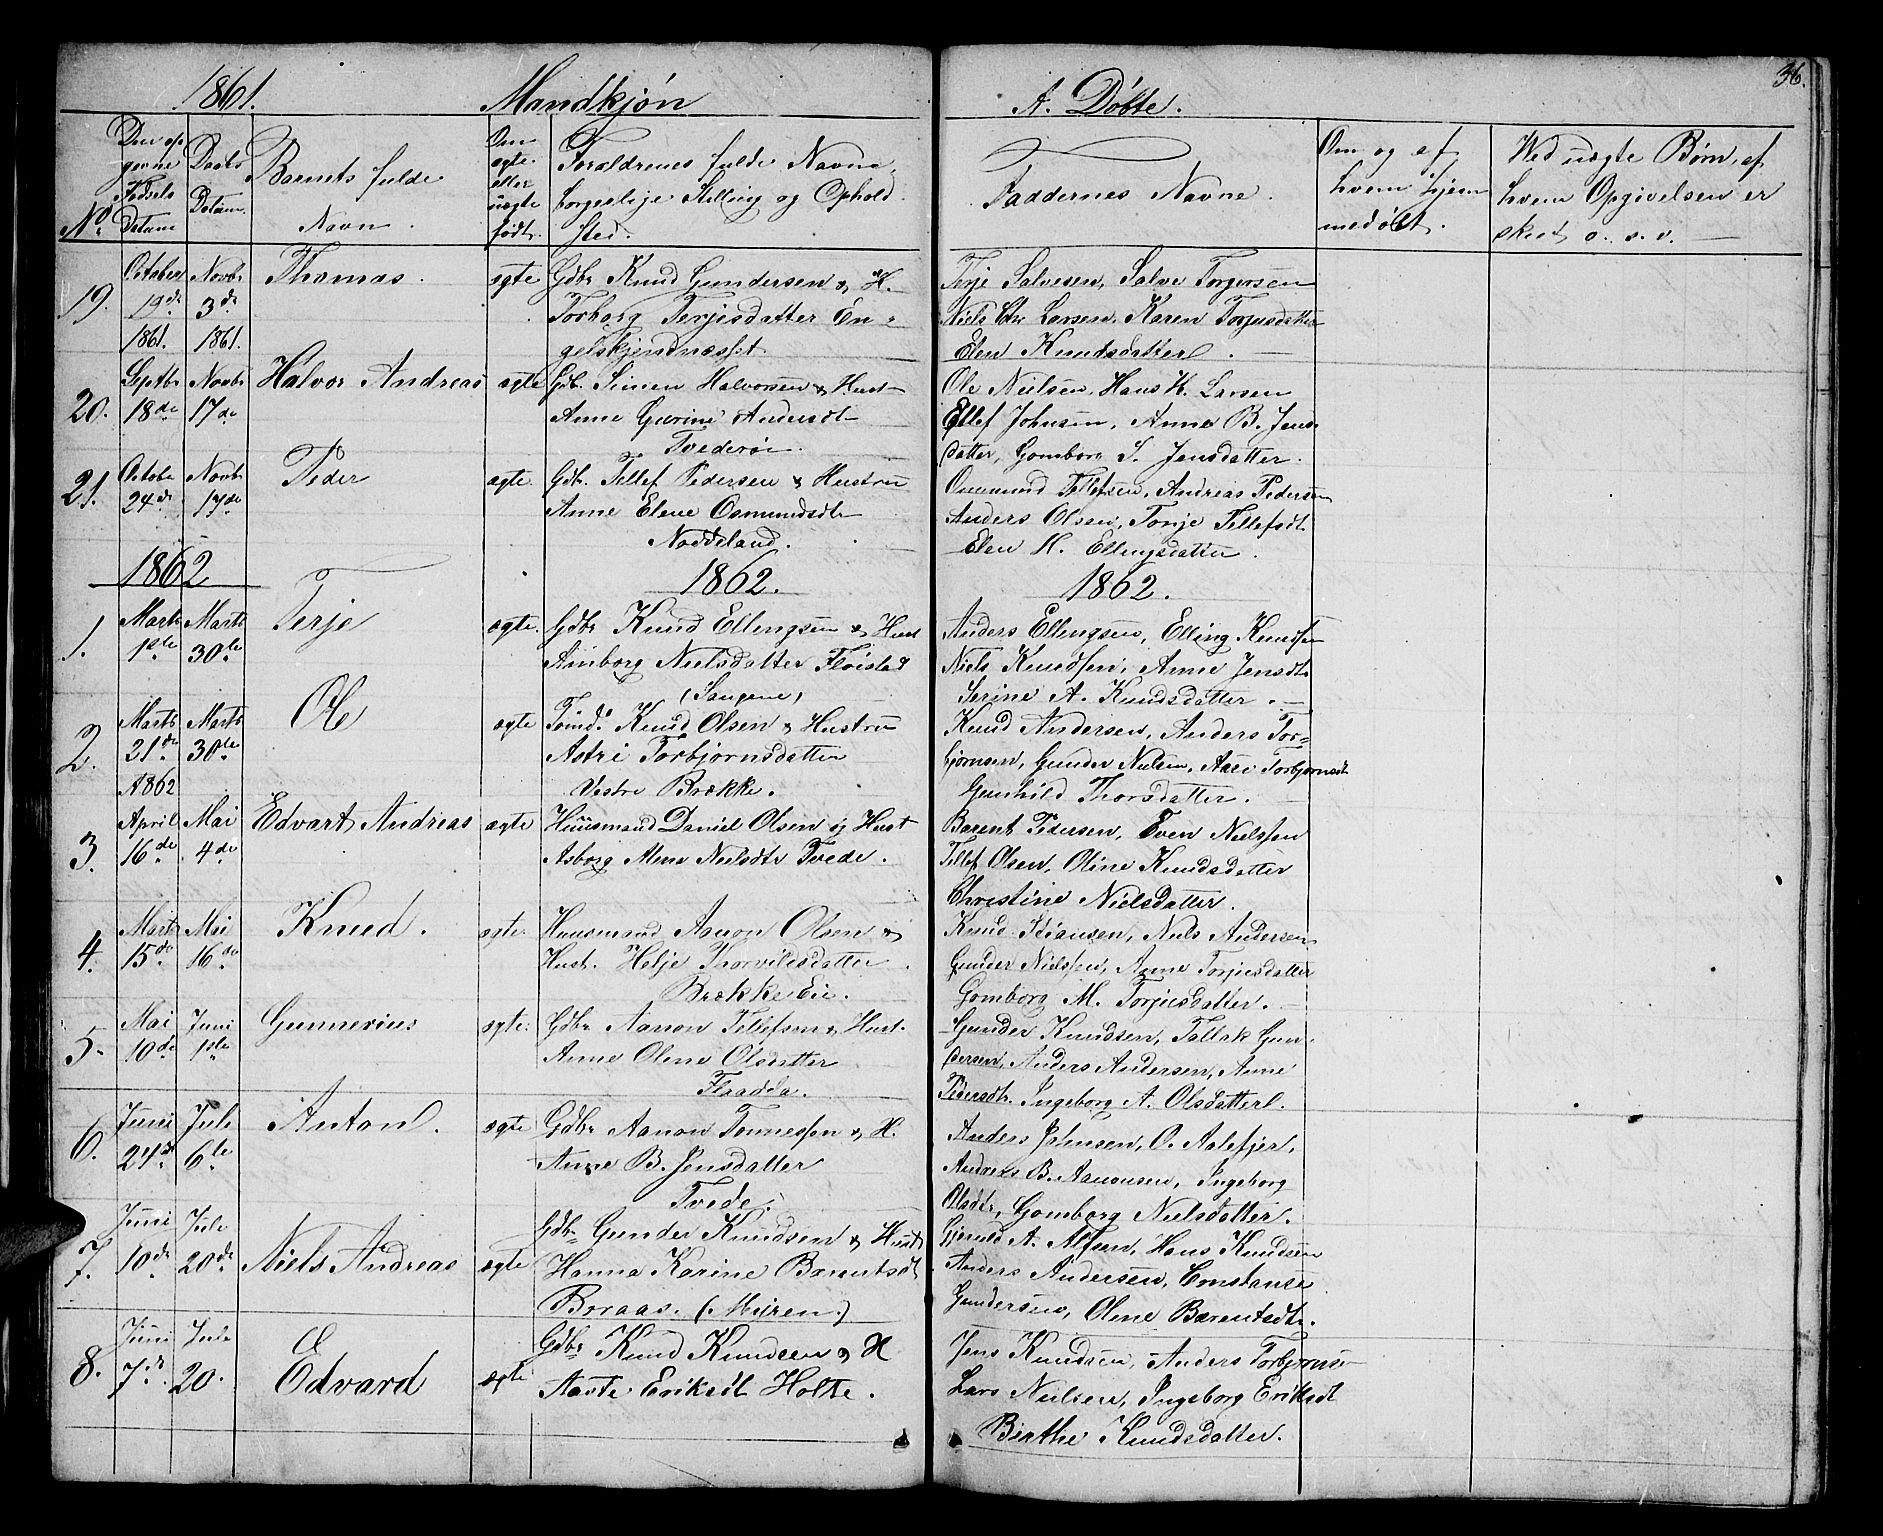 1861. Mandkjøn A. Døbte. 36.
No. Den opgivne Fødsels Datum
Daabs Datum.
Barnets fulde Navn.
Om ægte eller uægte født.
Forældrenes fulde Navne, borgerlige Stilling og Ophold sted.
Faddernes Navne.
Om og af hvem hjemmedøbt.
Wed uægte Børn, af hvem Opgivelsen er skeet, o. s. v.
19. October 19de 1861. Novbr 3de 1861. Thomas. ægte
Gdbr Knud Gundersen & H.
Torborg Terjesdatter En-
gelskjendnæsset
Terje Salvesen, Salve Torgersen
Niels Chr Larsen, Karen Torjusdatter
Elen Knudsdatter.
20. Septbr 18de Novbr 17de Halvor Andreas ægte
Gdb. Simen Halvorsen & Hust
Anne Gurine Andersdt
Tvederøi.
Ole Nielsen, Hans K. Larsen
Ellef Johnsen, Anne B. Jens
datter, Gomborg S. Jensdatter.
21. Octobr 24de Novbr 17de Peder ægte.
Gdb. Tellef Pedersen & Hustru
Anne Elene Osmundsdt
Noddeland.
Osmund Tellefsen, Andreas Pedersen
Anders Olsen, Tonje Tellefsdt.
Elen H. Ellingsdatter.
1862 1862. 1862.
1. Marts 1ste Marts 30te Terje ægte.
Gdbr Knud Ellengsen & Hust
Amborg Nielsdatter Fløistad
(Saugene)
Anders Ellengsen, Elling Knudsen
Niels Knudsen, Anne Jensdt.
Serine A. Knudsdatter.
2. Marts 21de 1862 Marts 30te Ole ægte
Knud Olsen & Hustru
Astri Torbjørnsdatter
Vestre Brække.
Knud Andersen, Anders Tor-
bjørnsen, Gunder Nielsen, Aase Torbjørnsdt
Gunhild Thorsdatter.
3. April 16de Mai 4de Edvart Andreas ægte
Huusmand Daniel Olsen og Hust
Asborg Nielsdtr Tvede.
Barent Pedersen, Even Nielssen
Tellef Olsen, Oline Knudsdatter
Christine Nielsdatter.
4. Marts 15de Mai 16de Knud. ægte.
Huusmand Aanon Olsen &
Hust. Helje Thorvildsdatter
Brække Eie.
Knud Niels Andersen
Gunder Nielssen, Anne Torjusdatter
Gomborg M. Torjusdatter.
5. Mai 10de Juni 1ste Gunnerius ægte.
Gdbr Aanon Tellefsen & Hust.
Anne Olene Olsdatter
Flaadda.
Gunder Knudsen, Tallak Gun-
dersen, Anders Andersen, Anne
Pedersdt. Ingeborg A. Olsdatter.
6. Juni 24de Juli 6te Anton. ægte
Gdbr Aanon Tønnessen & H.
Anne B. Jensdatter
Tvede.
Anders Johnsen, O. Aalefjer,
Andreas B. Aanonsen, Ingeborg
Olsdtr, Gomborg Nielsdatter.
7. Juni 10de Juli 20de Niels Andreas ægte
Gdbr Gunder Knudsen & Hust
Hanna Karine Barentsdt
Boraas. (Myren.)
A. Alfsen, Hans Knudsen
Anders Andersen, Constanse
Gundersen, Olene Barentsdt.
8. Juni 7de Juli 20. Edvard ægte
Gdbr Knud Knudsen & H
Aaste Eriksdt Holte.
Jens Knudsen, Anders Torbjørnsen
Lars Nielsen, Ingeborg Eriksdt
Birthe Knudsdatter.